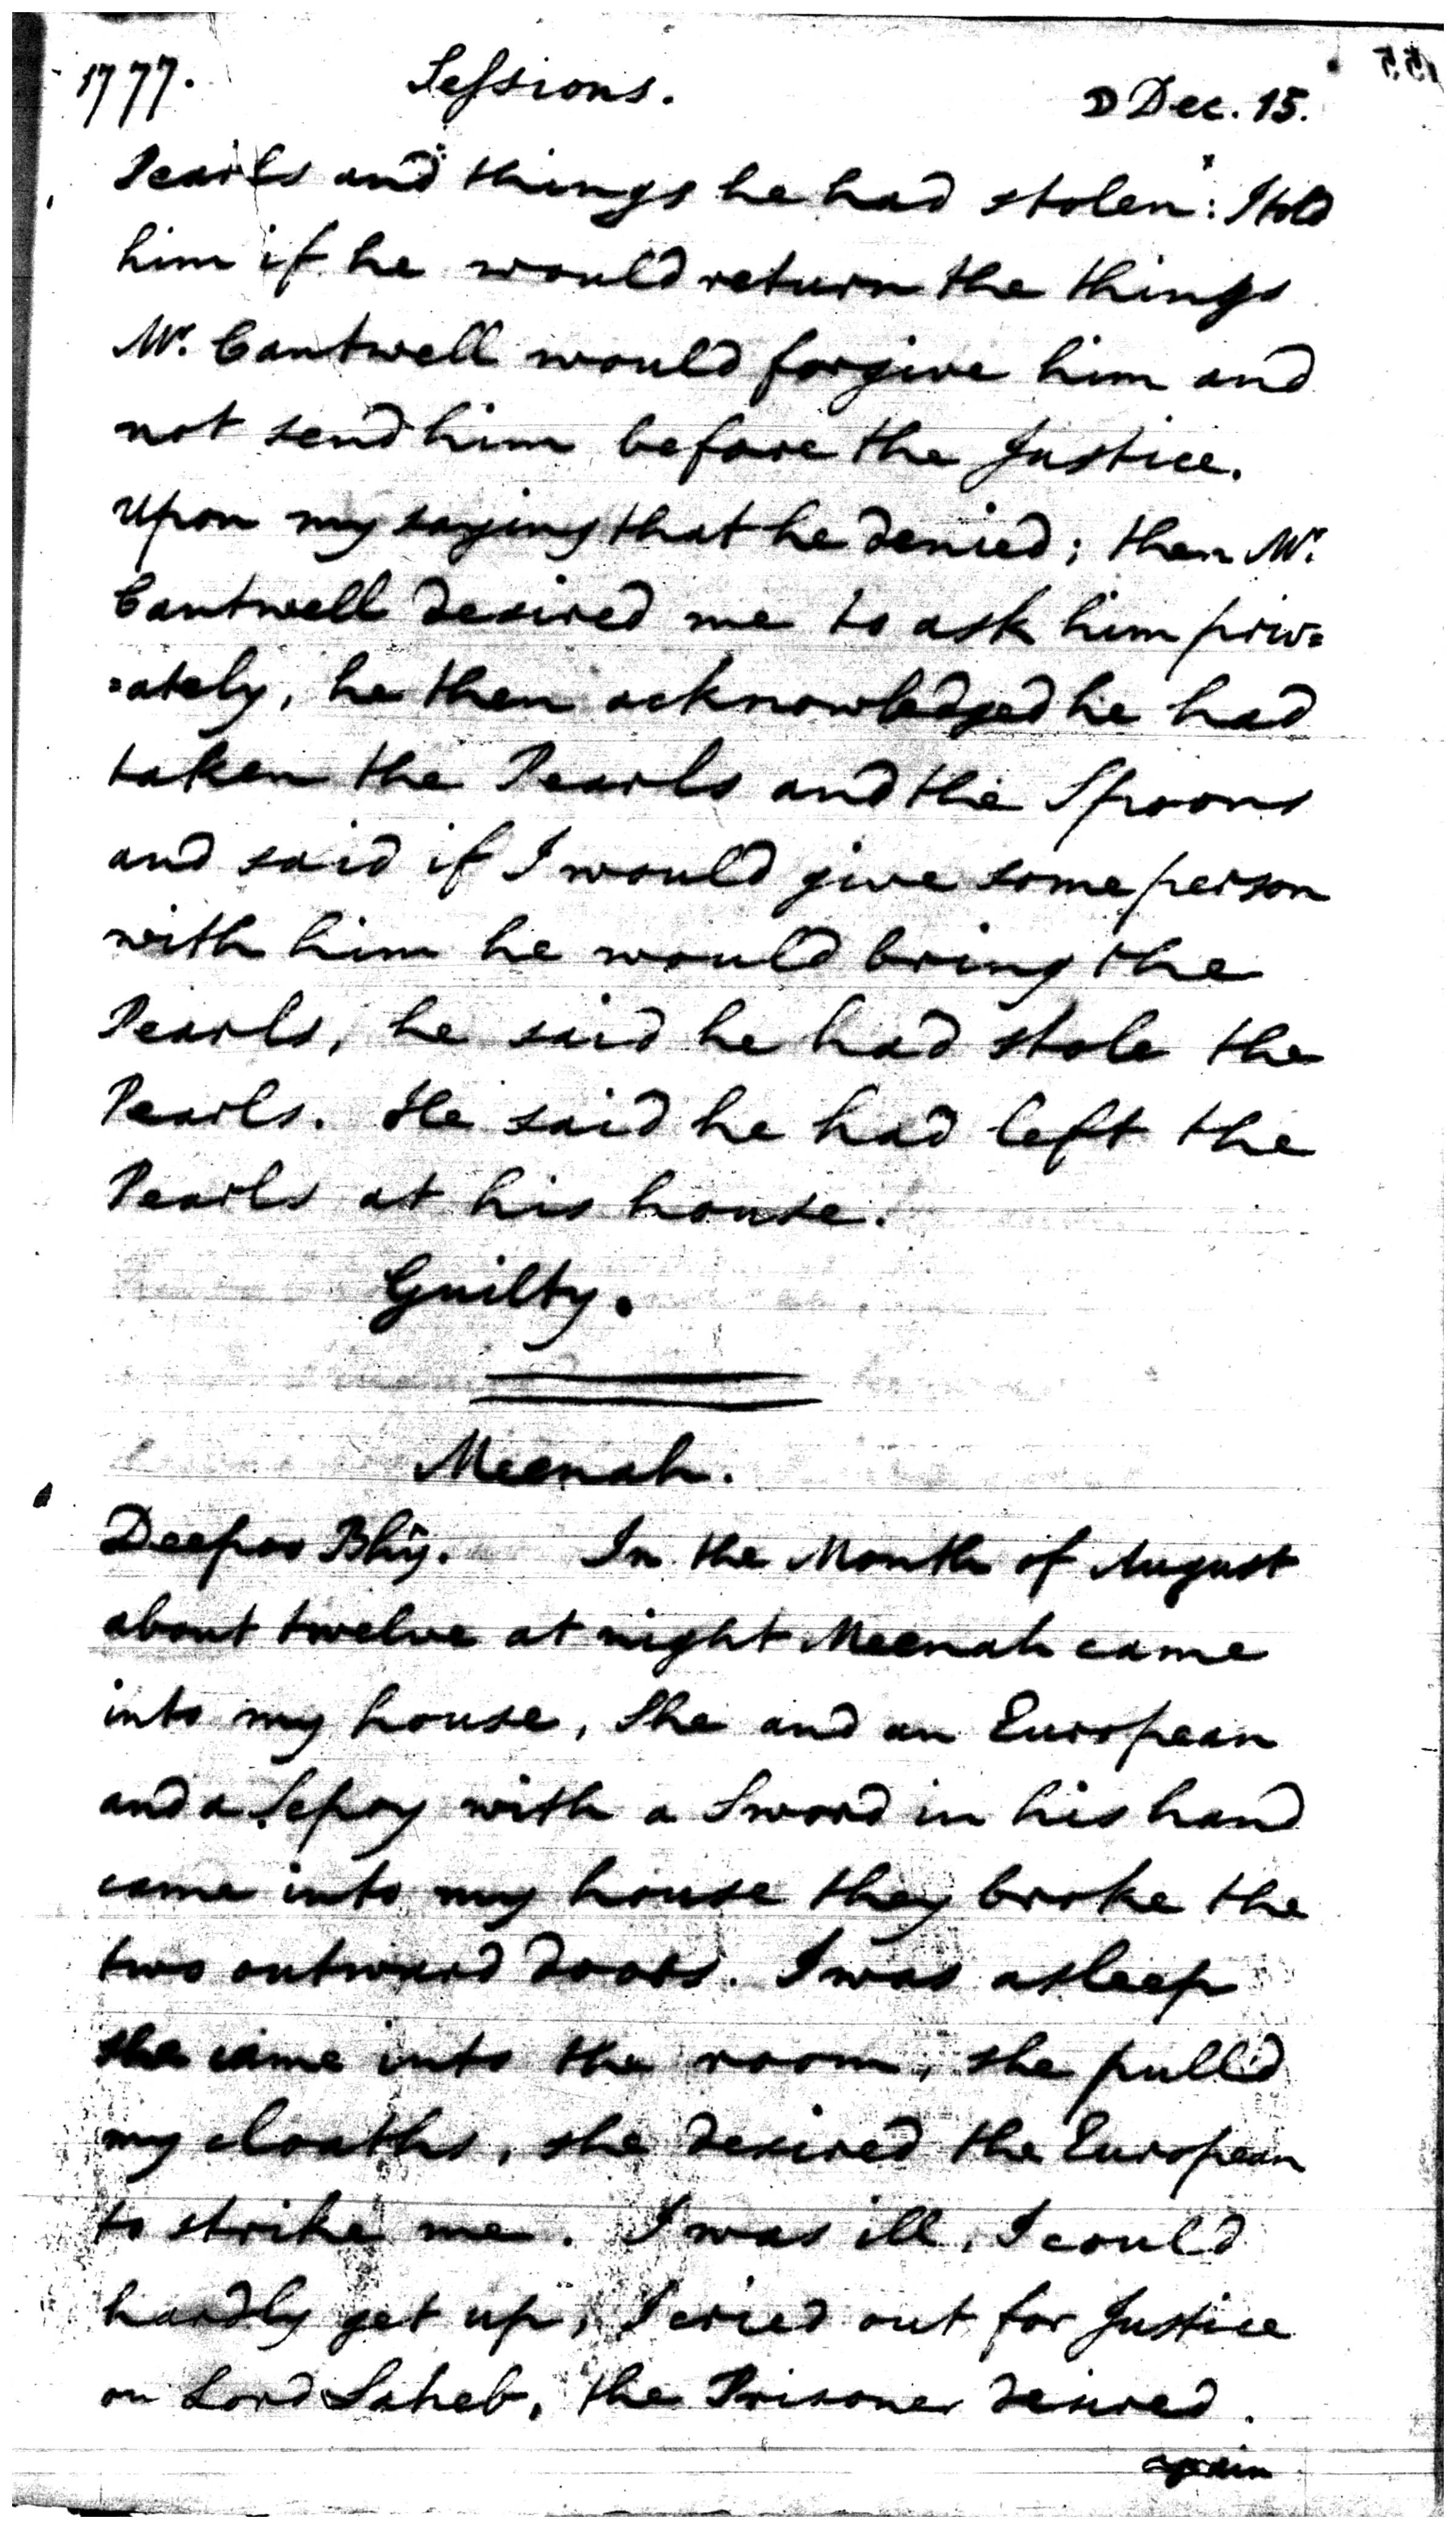 1777. Sessions. ☽ Dec. 15.
Pearls and things he had stolen: I told
him if he would return the things
Mr. Cantwell would forgive him and
not send him before the Justice.
Upon my saying that he denied; then Mr.
Cantwell desired me to ask him priv=
=ately, he then acknowledged he had
taken the Pearls and the Spoons
and said if I would give some person
with him he would bring the
Pearls, he said he had stole the
Pearls. He said he had left the
Pearls at his house.
Guilty.
Meenah.
In the Month of August
about twelve at night Meenah came
into my house, She and an European
and a Sepoy with a Sword in his hand
came into my house they broke the
two outward doors. I was asleep
she came into the room, she pull'd
my cloaths, she desired the European
to strike me. I was ill, I could
hardly get up, I cried out for Justice
on Lord Saheb, the Prisoner desired
again